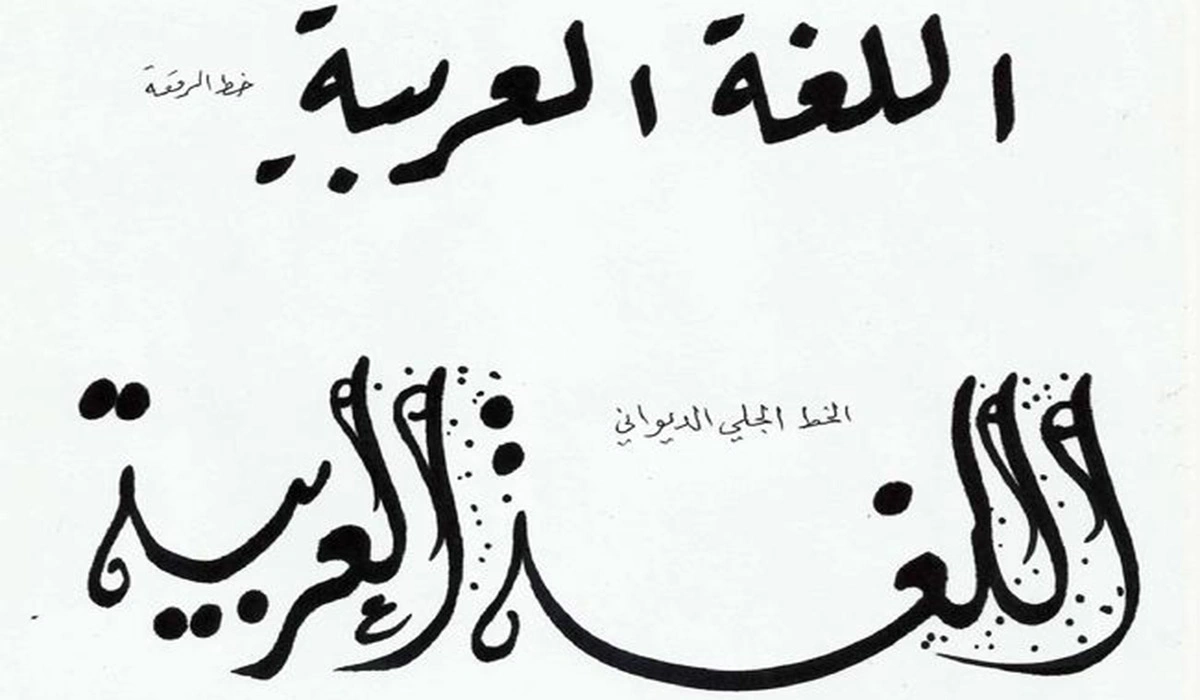 اللغة العربية
خط الرقعة
الخط الجلي الديواني
اللغة العربية